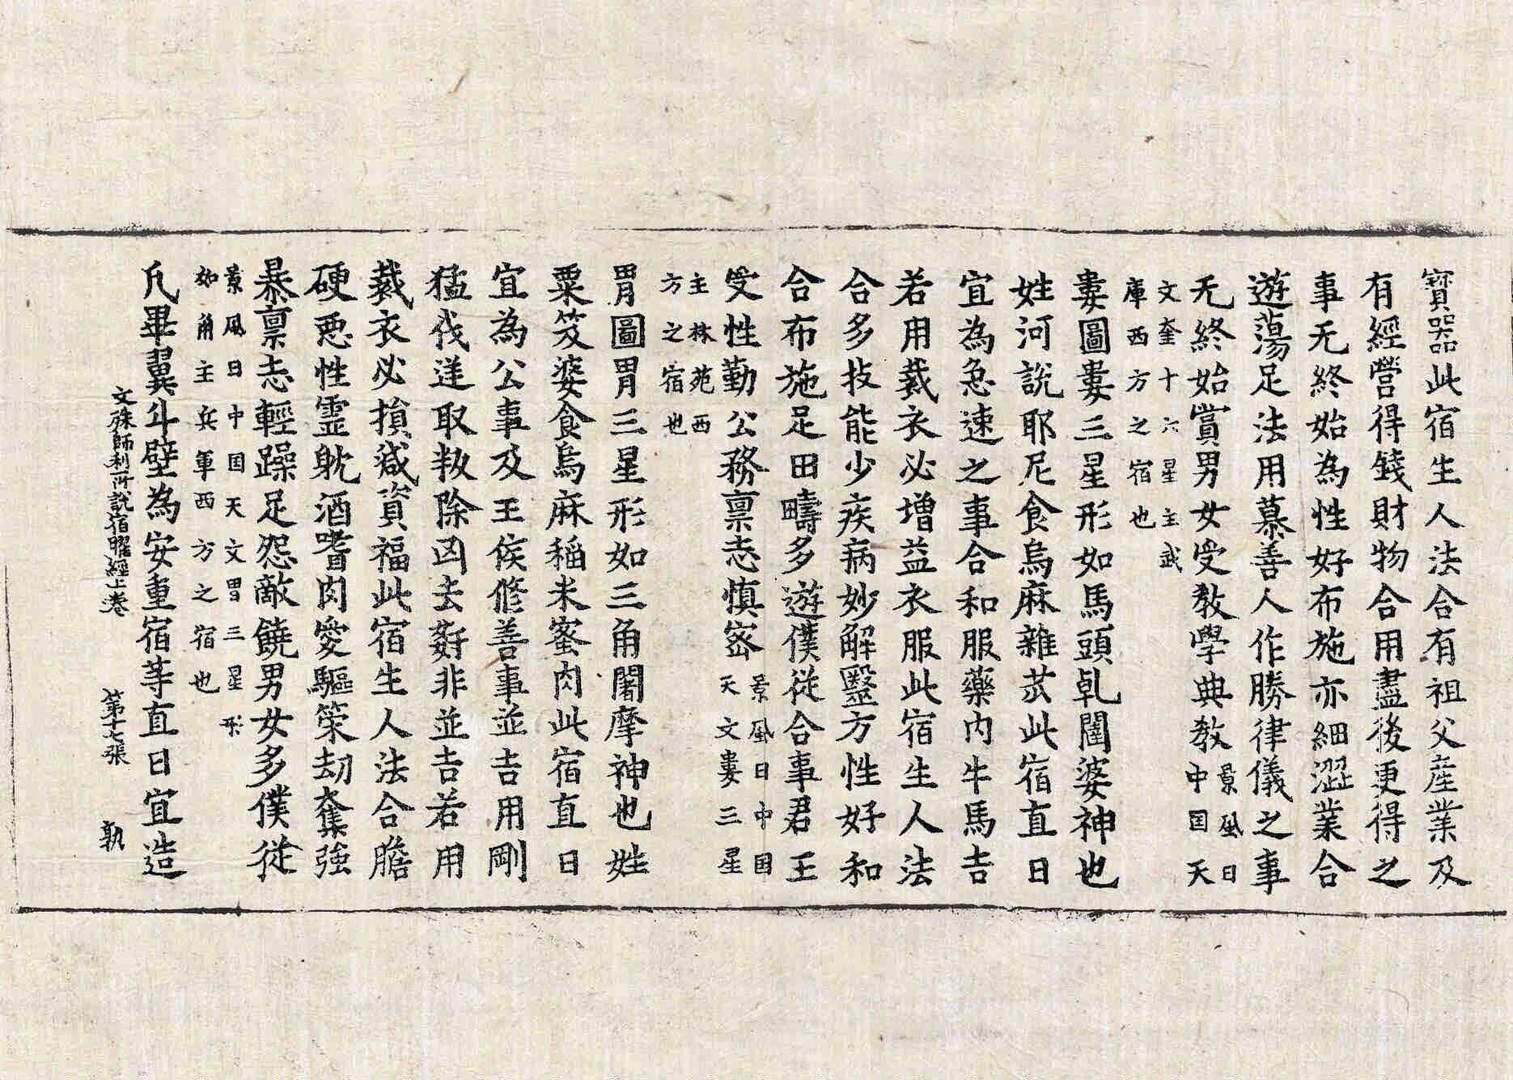 寶器此宿生人法合有祖父産業及
有經營得錢財物合用盡後更得之
事无終始為性好布施亦細澀業合
遊蕩足法用慕善人作勝律儀之事
无終始賞男女受教學典教景風日中国天
文奎十六星主武庫西方之宿也
婁圖婁三星形如馬頭乹闥婆神也
姓河說耶尼食烏麻雜苽此宿直日
宜為急速之事合和服藥內牛馬吉
若用裁衣必增益衣服此宿生人法
合多技能少疾病妙解毉方性好和
合布施足田疇多遊僕従合事君王
受性勤公務禀志慎宻景風日中国天文婁三星
主林苑西方之宿也
胃圖胃三星形如三角閣摩神也姓
粟笈婆食烏麻稲米蜜肉此宿直日
宜為公事及王侯修善事並吉用剛
猛伐逆取叛除凶去姧非並吉若用
裁衣必損減資福此宿生人法合膽
硬惡性霊躭酒嗜肉愛驅策劫奪強
暴禀志輕躁足怨敵饒男女多僕従
景風日中国天文胃三星形如角主兵軍西方之宿也
凡畢翼斗壁為安重宿等直日宜造
文殊師利所說宿曜經上卷 第十七張